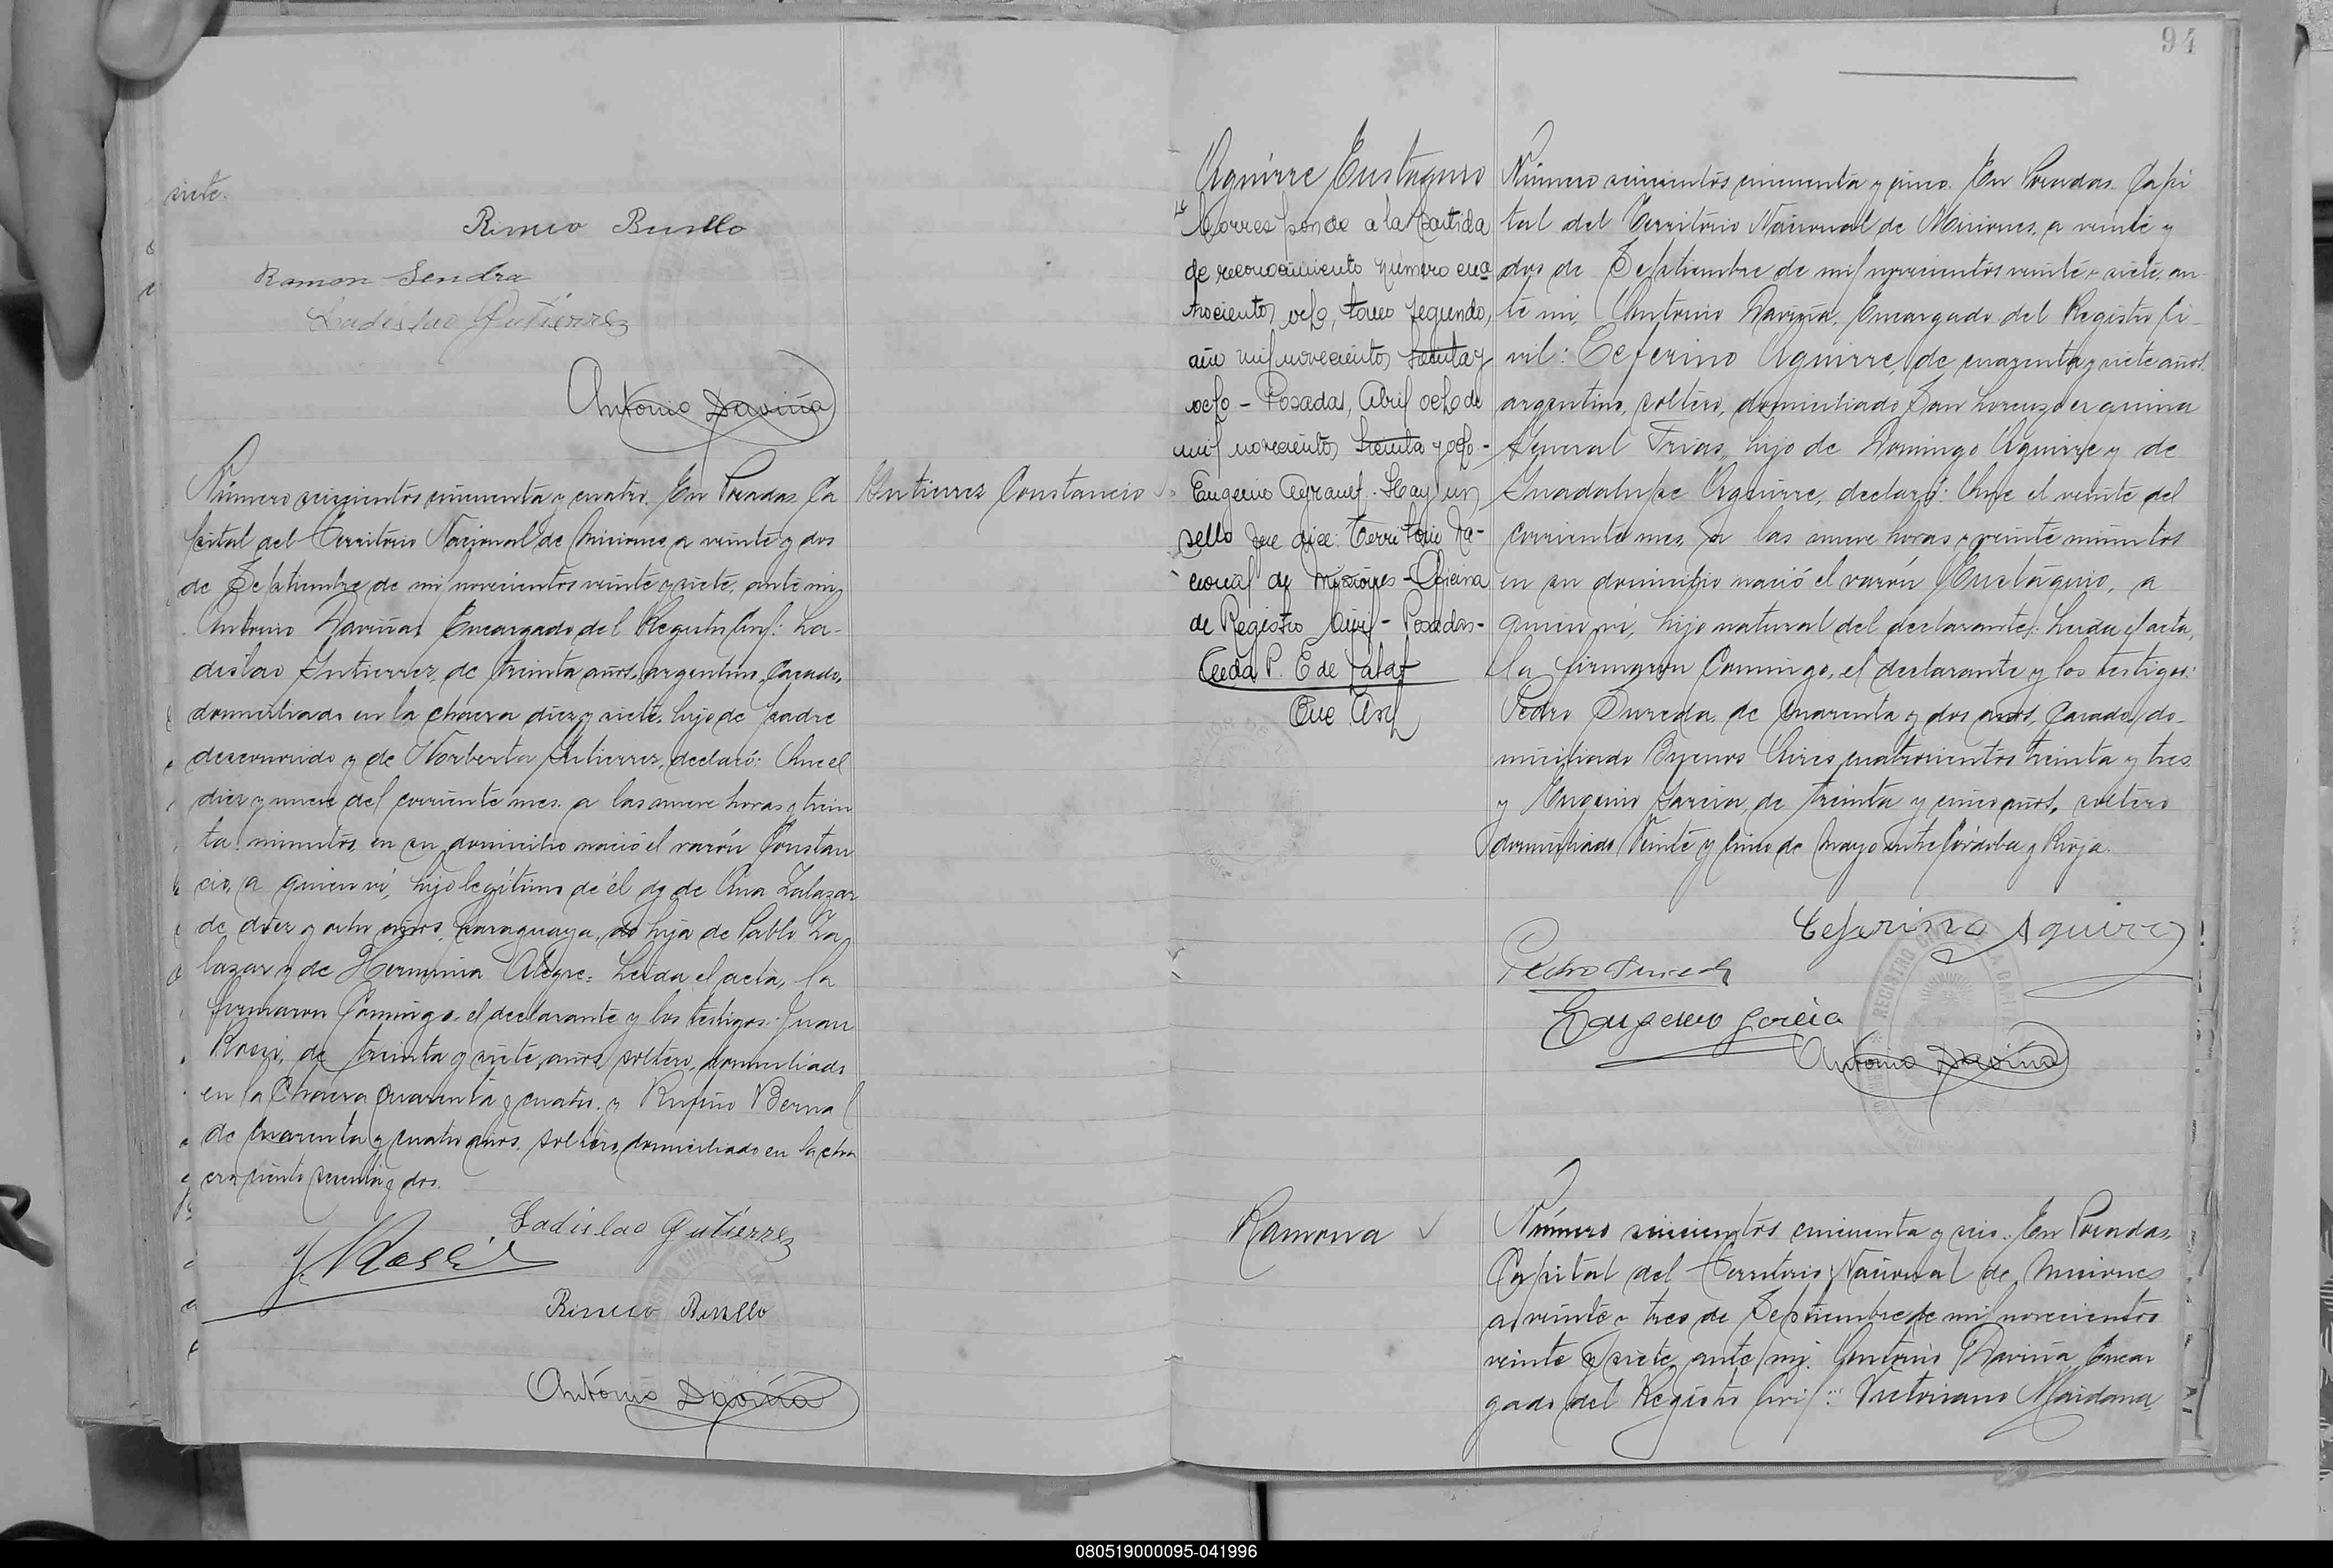 siete.
Ramon Sendra
Ladislao Gutierrez
Antonio Daviña
Número seiscientos cincuenta y cuatro. En Posadas, Ca
pital del Territorio Nacional de Misiones, a veinte y dos
de Septiembre de mil novecientos veinte y siete, ante mi,
Antonio Daviña, Encargado del Registro Civil: La-
dislao Gutierrez, de treinta años, argentino, casado,
domiciliado en la chacra diez y siete, hijo de padre
desconocido y de Norberta Gutierrez, declaró: Que el
diez y nueve del corriente mes, a las nueve horas y trein
ta minutos, en su domicilio nació el varón Constan
cio, a quien ví, hijo legítimo de él y de Ana Zalazar
de diez y ocho años, paraguaya, hija de Pablo Za
lazar y de Herminia Alegre: Leida el acta, la
firmaron Conmigo, el declarante y los testigos: Juan
Rossi, de treinta y siete años, soltero, domiciliado
en la Chacra Cuarenta y cuatro, y Rufino Bernal
de cuarenta y cuatro años, soltero, domiciliado en la cha
cra ciento y dos.
Ladislao Gutierrez
J. Rossi
Antonio Daviña
Gutierrez Constancio
94
Aguirre Eustaquio
Corresponde a la partida
de reconocimiento número cua
trocientos ocho, tomo segundo,
año mil novecientos treinta y
ocho - Posadas, Abril ocho de
mil novecientos treinta y ocho -
Eugenio Hay un
sello que dice: Territorio Na-
cional de Misiones - Oficina
de Registro Civil - Posadas -
P. E de
Número seiscientos cincuenta y cinco. En Posadas, Capi
tal del Territorio Nacional de Misiones, a veinte y
dos de Septiembre de mil novecientos veinte y siete, an-
te mi, Antonio Daviña, Encargado del Registro Ci-
vil: Ceferino Aguirre, de cuarenta y siete años,
argentino, soltero, domiciliado San Lorenzo esquina
General Frias, hijo de Domingo Aguirre y de
Guadalupe Aguirre, declaró: Que el veinte del
corriente mes, a las nueve horas y veinte minutos
en su domicilio nació el varón Eustaquio, a
quien ví, hijo natural del declarante: Leida el acta,
la firmaron Conmigo, el declarante y los testigos:
Pedro Sureda, de cuarenta y dos años, casado, do-
miciliado Buenos Aires cuatrocientos treinta y tres
y Eugenio Garcia, de treinta y cinco años, soltero
domiciliado Veinte y cinco de Mayo entre Córdoba y Rioja.
Ceferino Aguirre
Pedro Sureda
Eugenio Garcia
Antonio Daviña
Ramona
Número seiscientos cincuenta y seis. En Posadas,
Capital del Territorio Nacional de Misiones
a veinte y tres de Septiembre de mil novecientos
veinte y siete, ante mi, Antonio Daviña, Encar
gado del Registro Civil: Victoriano Maidana,
080519000095-041996